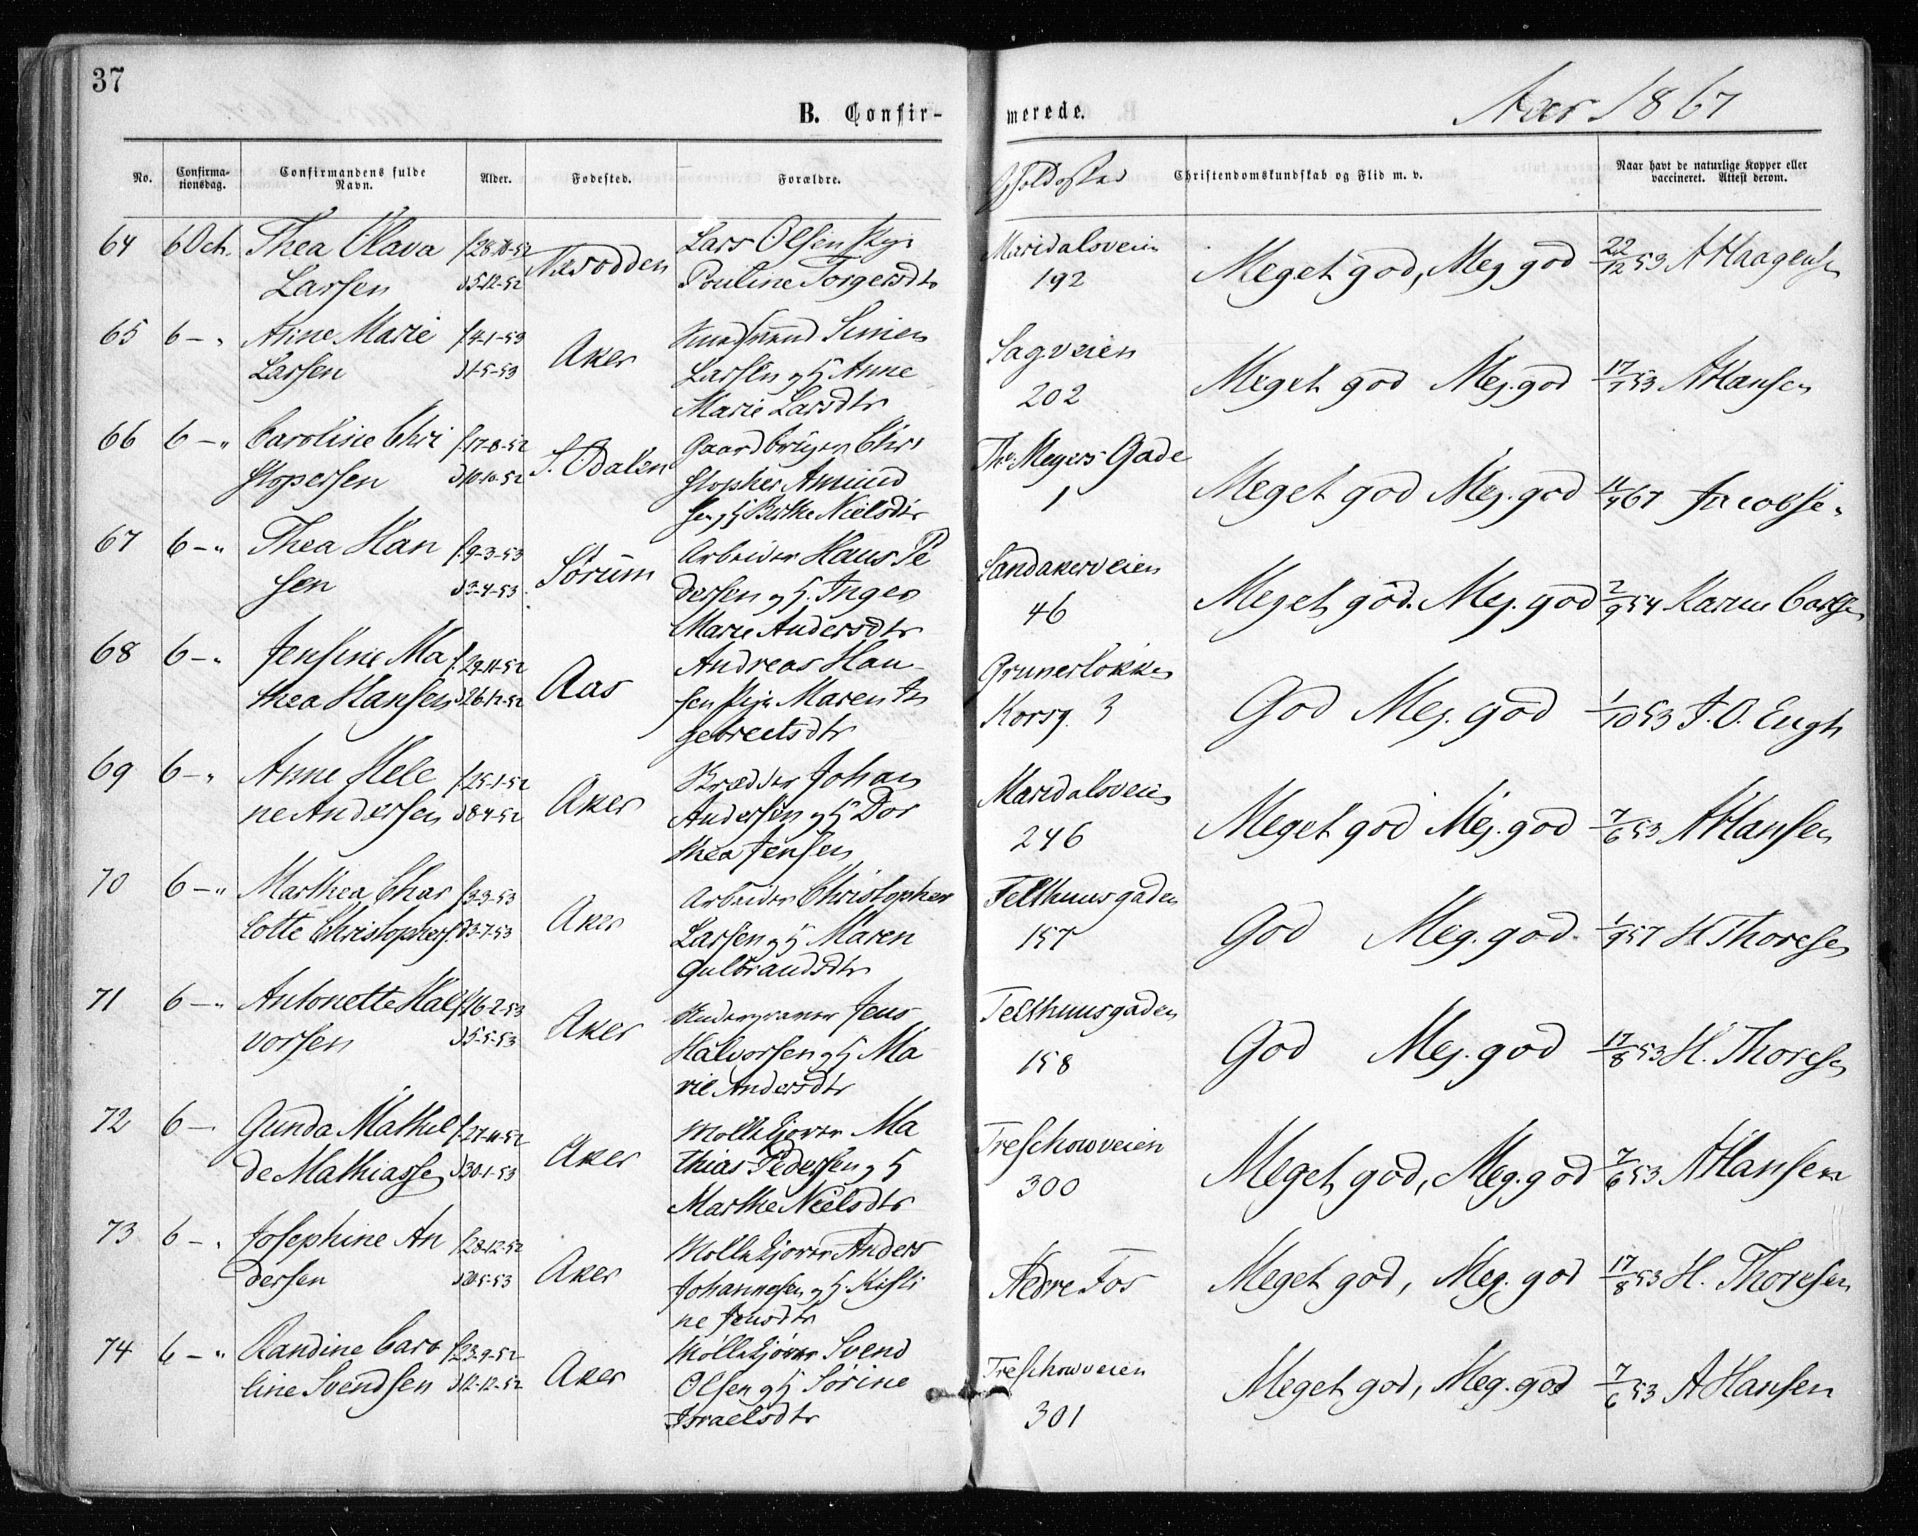 37
B. Confir-
merede.
Aar 1867
No.
Confirma-
tionsdag.
Confirmandens fulde
Navn.
Alder.
Fødested.
Forældre.
Opholdssted
Christendomskundskab og Flid m. v.
Naar havt de naturlige Kopper eller
vaccineret. Attest derom.
64 6 Oct. Thea Olava f. 28-10-52 Nesodden Lars Olsen Maridalsveien Meget god, Meg god 22/12 53 A Haagensen
Larsen d 5-12-52 Pouline Torgersdtr 192
65 6 - " Aline Marie f 4-1-53 Aker Simen Sagveien Meget god Meg. god 17/7 53 A Hansen
Larsen d 1-5-53 Larsen og H Anne 202
Marie Larsdtr
66 6 - " Caroline Chri f. 17-8-52 S. Odalen Gaardbruger Chri Ths. Meyers Gade Meget god Meg. god 11/4 67 Jacobsen
stopersen d 10-10-52 stopher Amund 1
sen og H Birthe Nielsdtr
67 6 - " Thea Han f. 9-3-53 Sørum Arbeider Hans Pe Sandakerveien Meget god. Meg. god 2/9 54 Karen
sen d 3-4-53 dersen og H. Inger 46
Marie Andersdtr
68 6 - " Jensine Ma f. 29-11-52 Aas Andreas Han- Grunerløkken God Meg. god 1/10 53 J. O. Engh
thea Hansen d 26-12-52 sen Maren In Korsg. 3
gebretsdtr
69 6 - " Anne Hele f. 25-1-52 Aker Johan Maridalsveien Meget god Meg. god 7/6 53 A Hansen
ne Andersen d 8-4-52 Andersen og H Dor 246
thea Jensen
70 6 - " Marthea Char f 3-3-53 Aker Arbeider Christopher Telthuusgaden God Meg. god. 1/9 57 H Thoresen
lotte Christophers. d 3-7-53 Larsen og H Maren 157
Gulbrandsdtr
71 6 - " Antonette Hal f 16-2-53 Aker Jens Telthuusgaden God Meg. god 17/8 53 H. Thoresen
vorsen d 5-5-53 Halvorsen og H Ma- 158
rie Andersdtr
72 6 - Gunda Mathil f. 27-11-52 Aker Møllekjører Ma Treschowveien Meget god, Meg. god 7/6 53 A Hansen
de Mathiassen d 30-1-53 thias Pedersen og H 300
Marthe Nielsdtr
73 6 - " Josephine An f. 28-12-52 Aker Møllekjører Anders Nedre Fos Meget god, Meg. god 17/8 53 H. Thoresen
dersen d 20-5-53 Johannesen og H. Kisti
ne Jonsdtr
74 6 - " Randine Caro f. 23-9-52 Aker Møllekjører Svend Treschowveien Meget god, Meg. god 7/6 53 A Hansen
line Svendsen d 12-12-52 Olsen og H Sørine 301
Israelsdtr